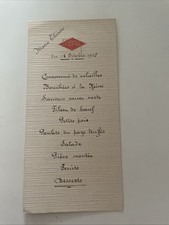 Consommé de volailles
Bouchées à la Reine
Saumon sauce verte
Filet de bœuf
Petits pois
Poulets du pays truffés
Salade
Pièce montée
Fruits
Desserts